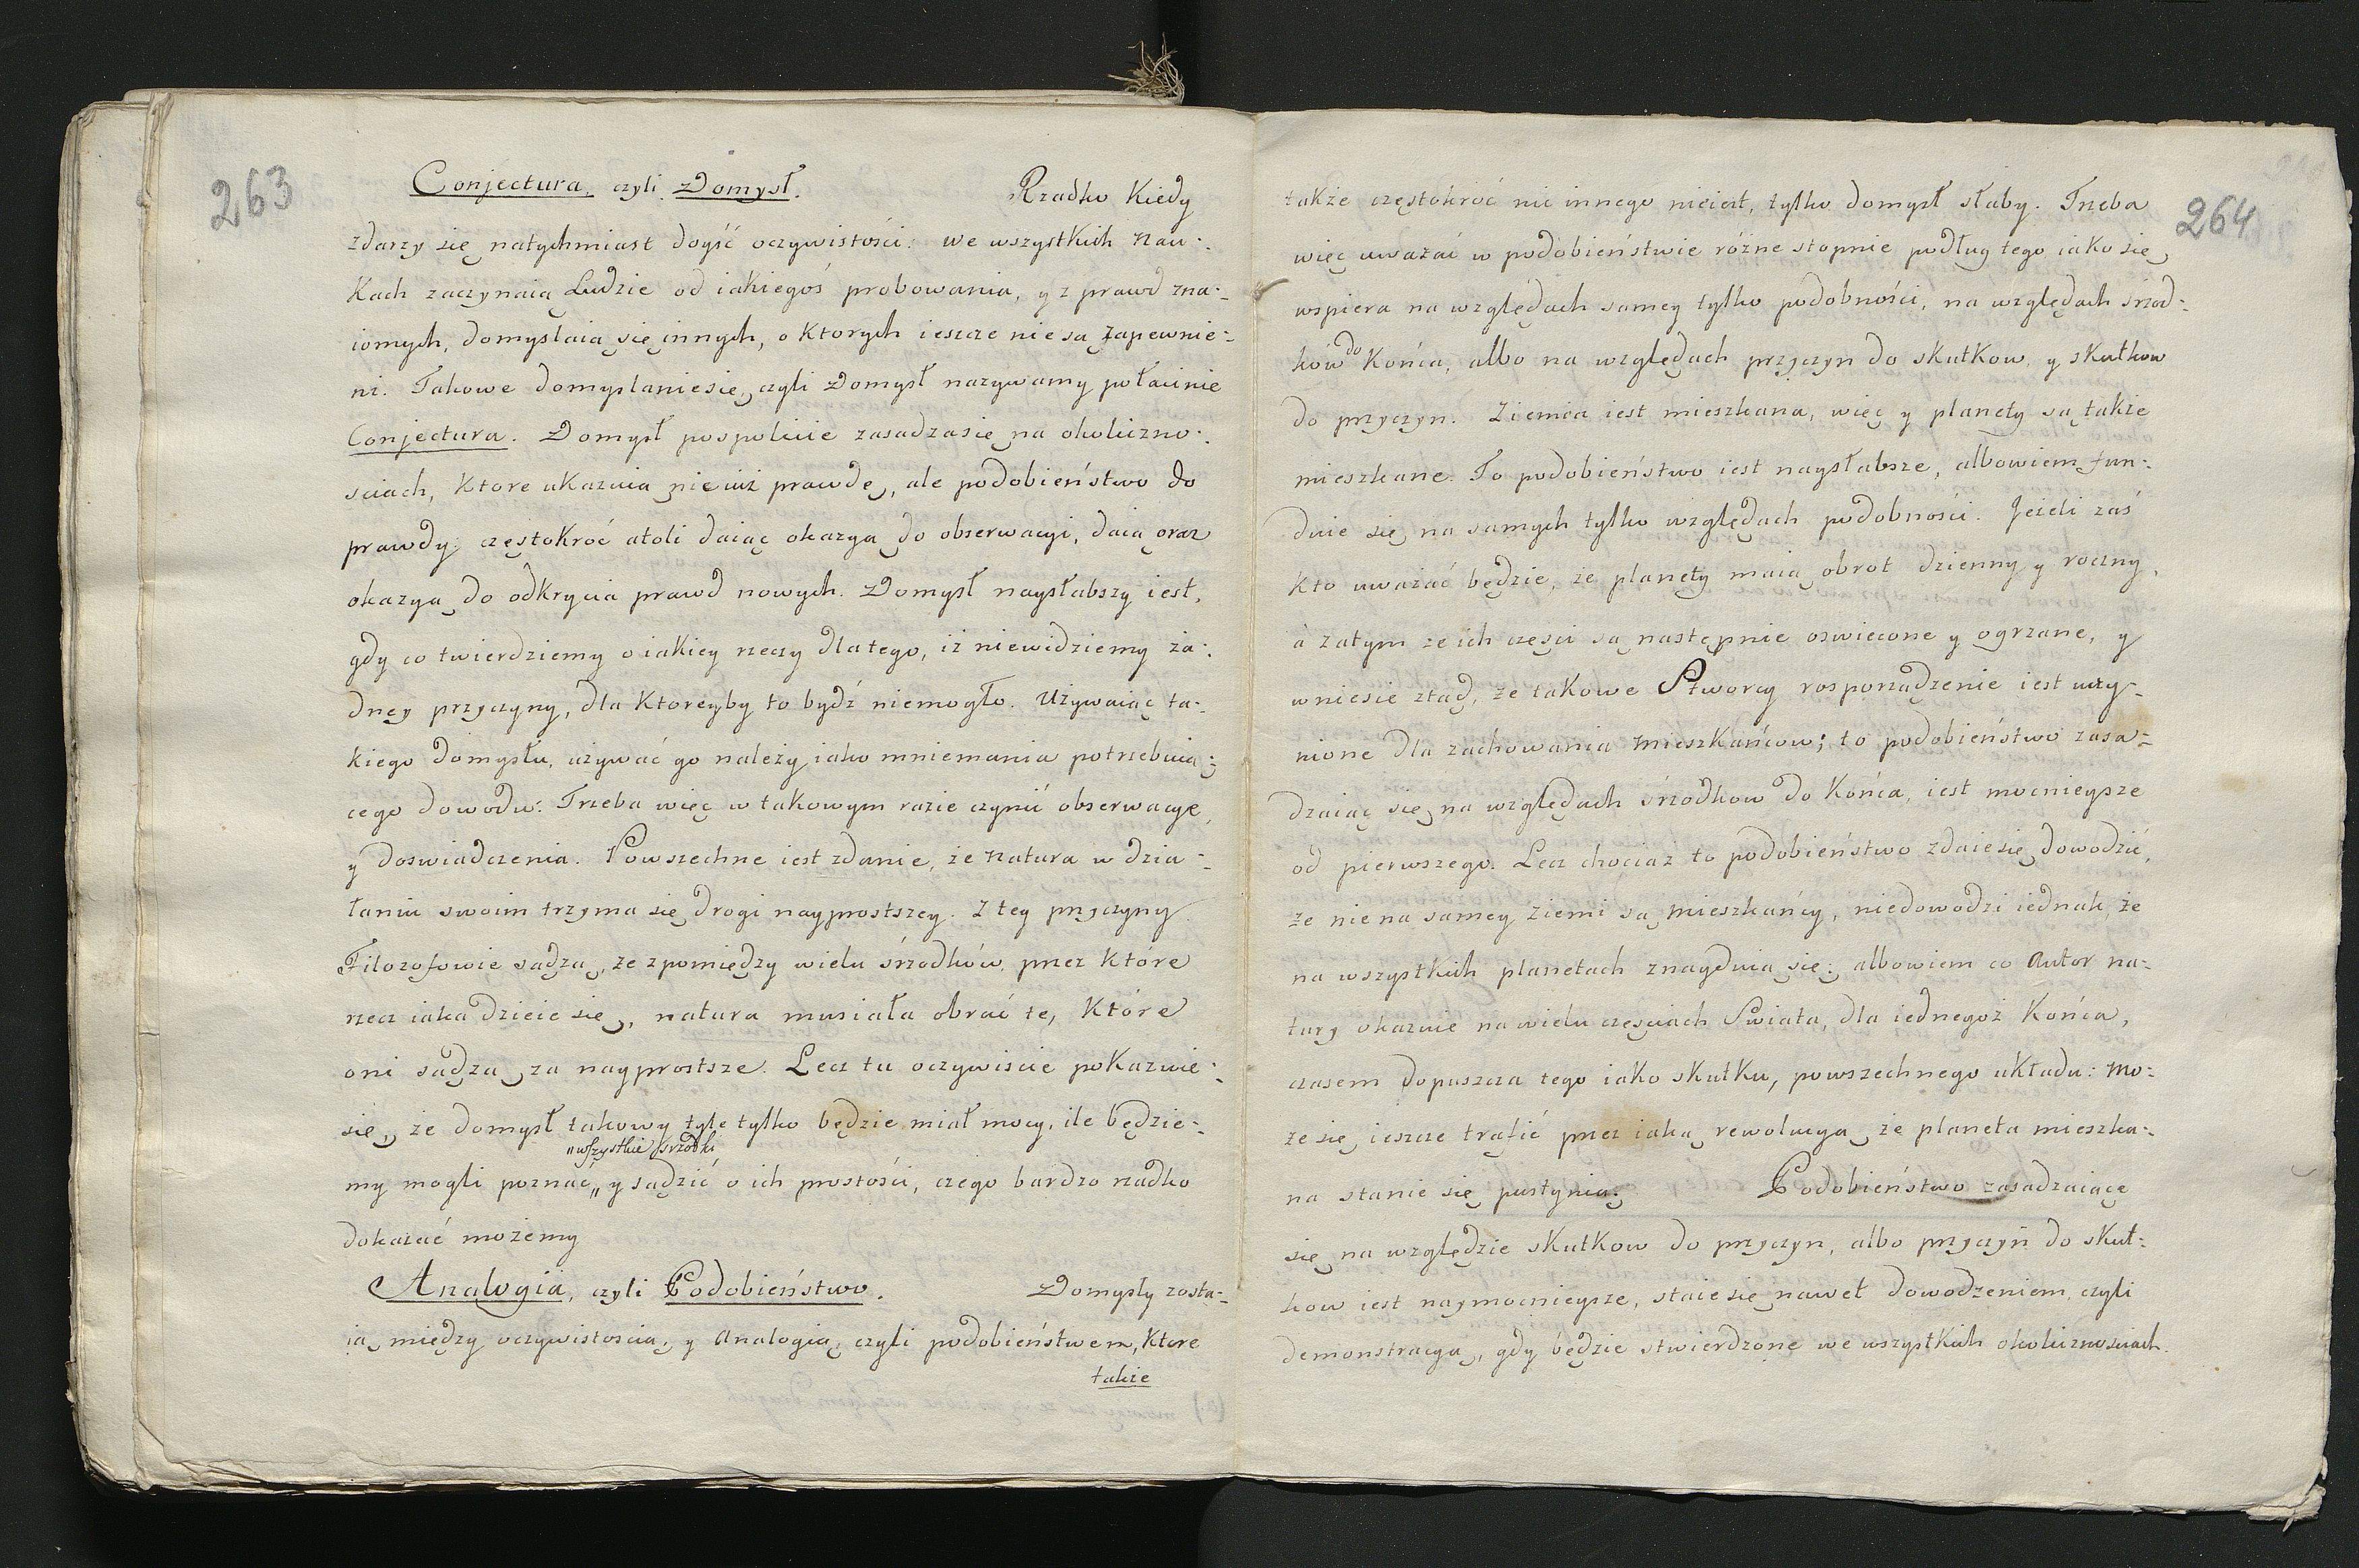 263
Conjectura, czyli Domysł. Rzadko Kiedy
zdarzy się natychmiast doyść oczywistości: we wszystkich nau-
Kach zaczynaią Ludzie od iakiegoś probowania, y z prawd zna-
iomych, domyslaią się innych, o ktorych ieszcze nie są zapewnie-
ni. Takowe domyslanie się, czyli Domysł nazywamy połacinie
Conjectura. Domysł pospolicie zasadza się na okoliczno-
sciach, ktore ukazuią nie iuż prawdę, ale podobieństwo do
prawdy; częstokroć atoli daiąc okazyą do obserwacyi, daią oraz
okazyą do odkrycia prawd nowych. Domysł naysłabszy iest,
gdy co twierdziemy o iakiey rzeczy dlatego, iż niewidziemy ża-
dney przyczyny, dla Ktoreyby to bydź niemogło. Używaiąc ta-
kiego domysłu, używać go należy iako mniemania potrzebuią-
cego dowodu. Trzeba więc w takowym razie czynić obserwacye,
y doswiadczenia. Powszechne iest zdanie, że natura w dzia-
łaniu swoim trzyma się drogi nayprostszey. Z tey przyczyny
Filozofowie sądzą, że zpomiędzy wielu śrzodków, przez Które
rzecz iaka dzieie się, natura musiała obrać te, Które
oni sądzą za nayprostsze. Lecz tu oczywiscie pokazuie
się, że domysł takowy tyle tylko będzie miał mocy, ile będzie-
„wszystkie srzodki
my mogli poznać „ y sądzić o ich prostości, czego bardzo rzadko
dokazać możemy
Analogia, czyli Podobieństwo. Domysły zosta-
ią między oczywistoscią, y Analogią, czyli podobieństwem, Ktore
także
264
także częstokroć nic innego nieiest, tylko domysł słaby. Trzeba
więc uważać w podobieństwie różne stopnie podług tego iako się
wspiera na względach samey tylko podobności, na względach srzod-
do
ków Końca, albo na względach przyczyn do skutkow, y skutkow
do przyczyn. Ziemia iest mieszkana, więc y planety są także
mieszkane. To podobieństwo iest naysłabsze, albowiem fun-
duie się na samych tylko względach podobności. Jeżeli zaś
Kto uważać będzie, że planety maią obrot dzienny y roczny,
à zatym że ich częsci są następnie oswiecone y ogrzane, y
wniesie ztąd, że takowe Stworcy rosporządzenie iest uczy-
nione dla zachowania Mieszkańcow; to podobieństwo zasa-
dzaiąc się na względach śrzodkow do Końca, iest mocnieysze
od pierwszego. Lecz chociaz to podobieństwo zdaie się dowodzić,
że nie na samey ziemi są mieszkańcy, niedowodzi iednak, że
na wszystkich planetach znayduią się: albowiem co Autor na-
tury okazuie na wielu częsciach Swiata, dla iednegoż Końca,
czasem dopuszcza tego iako skutku, powszechnego układu: Mo-
że się ieszcze trafić przez iaką rewolucyą, że planeta mieszka-
na stanie się pustynią. Podobieństwo zasadzaiące
się na względzie skutkow do przyczyn, albo przyczyn do skut-
kow iest naymocnieysze, staie się nawet dowodzeniem, czyli
demonstracyą, gdy będzie stwierdzone we wszystkich okolicznosciach.